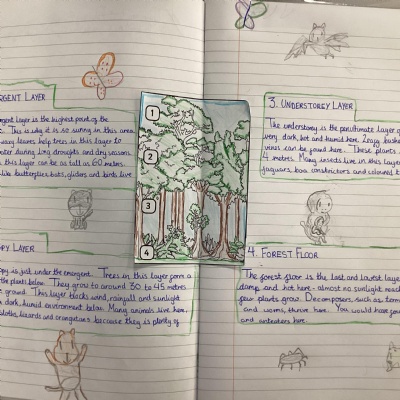 RGENT LAYER
gent layer is the highest point of the
This is why it is so sunny in this area.
waxy leaves help trees in this layer to
water during long droughts and dry seasons.
this layer can be as tall as 60 metres.
like butterflies, bats, gliders and birds live
PY LAYER
py is just under the emergent. Trees in this layer form a
the plants below. They grow to around 30 to 45 metres
ground. This layer blocks wind, rainfall and sunlight
dark, humid environment below. Many animals live here,
sloths, lizards and orangutans because they is plenty of
1
2
3
4
3. UNDERSTOREY LAYER
The understorey is the penultimate layer o
very dark, hot and humid here. Leafy bushes
vines can be found here. These plants
4 metres. Many insects live in this layer
jaguars, boa constrictors and coloured t
4. FOREST FLOOR
The forest floor is the last and lowest layer
damp and hot here - almost no sunlight reach
few plants grow. Decomposers, such as term
and worms, thrive here. You would have
and anteaters here.